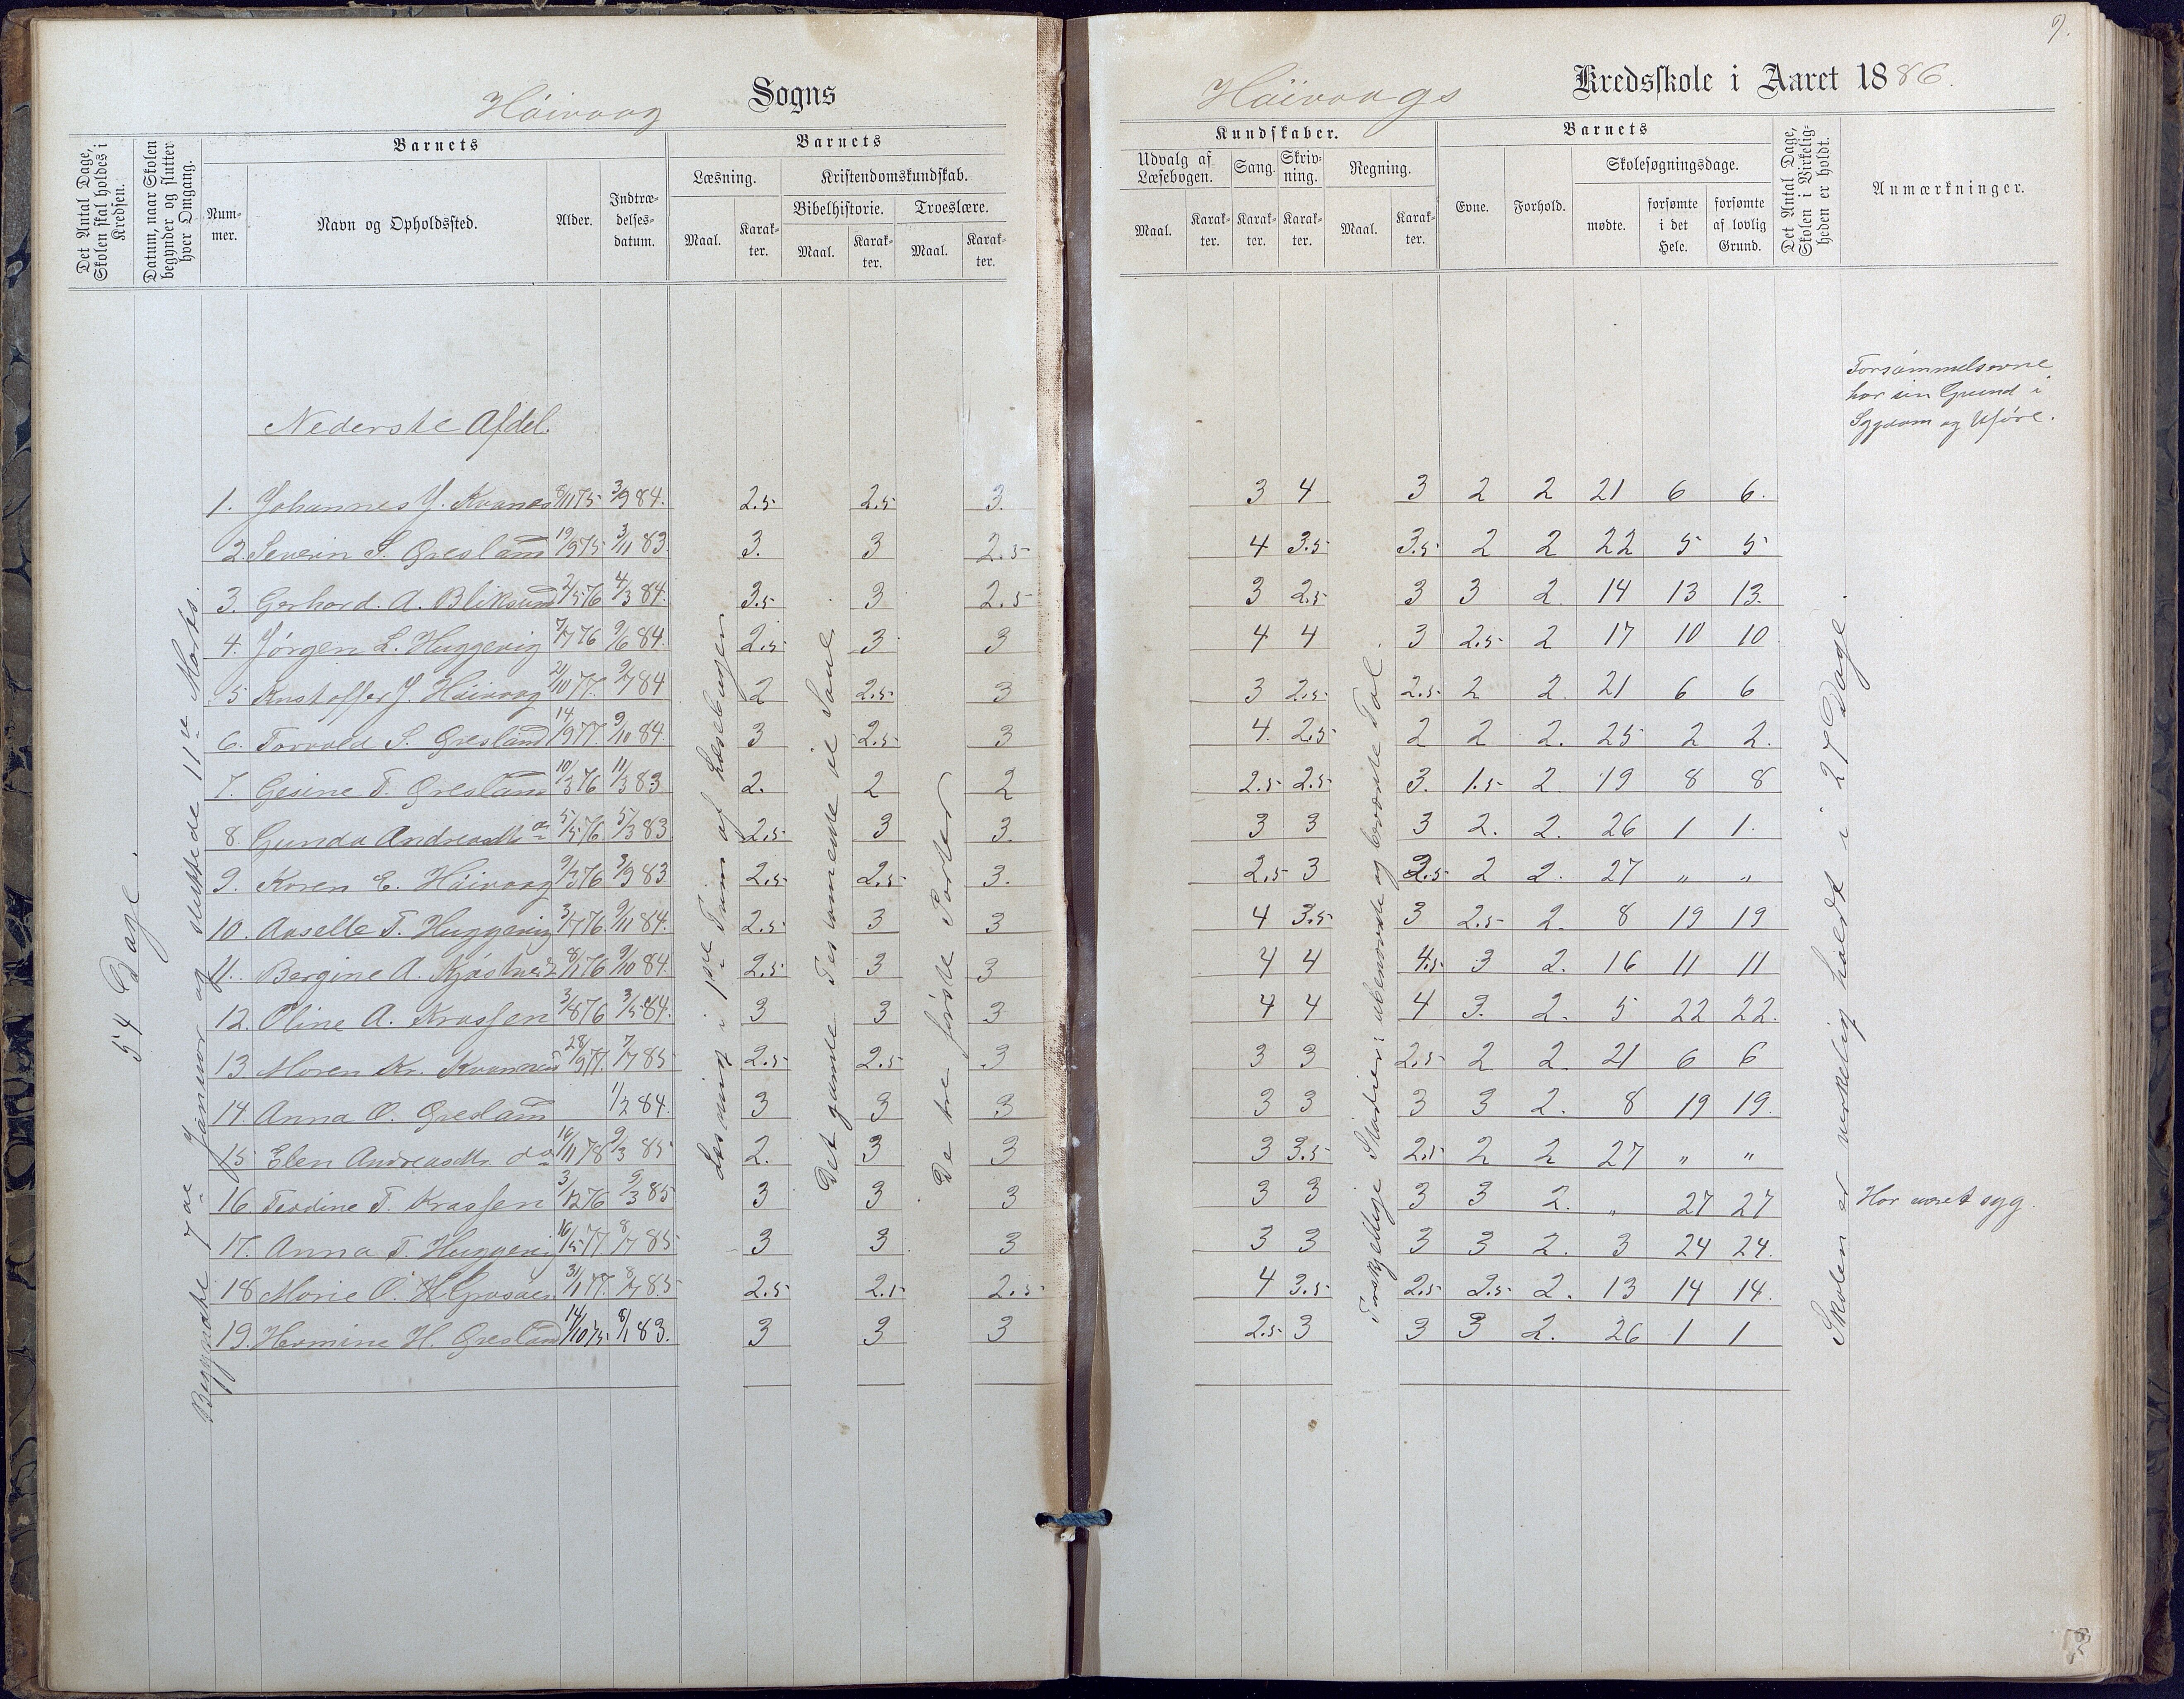 9.
Høivaag Sogns
Høivaags Kredsskole i Aaret 1886.
Det Antal Dage, Skolen skal holdes i Kredsen.
Datum, naar Skolen begynder og slutter hver Omgang.
Barnets
Num-mer.
Navn og Opholdssted.
Alder.
Indtræ-delses-datum.
Barnets
Læsning.
Maal.
Karak-ter.
Kristendomskundskab.
Bibelhistorie.
Maal.
Karak-ter.
Troeslære.
Maal.
Karak-ter.
Kundskaber.
Udvalg af Læsebogen.
Maal.
Karak-ter.
Sang.
Karak-ter.
Skriv-ning.
Karak-ter.
Regning.
Maal.
Karak-ter.
Barnets
Evne.
Forhold.
Skolesøgningsdage.
mødte.
forsømte i det Hele.
forsømte af lovlig Grund.
Det Antal Dage, Skolen i Virkelig-heden er holdt.
Anmærkninger.
Forsømmelserne
har sin Grund i
Sygdom og Uføre.
Nederste Afdel.
54 Dage.
Begyndte 7de Januar og sluttede 11te Marts.
Læsning i 1ste Trin af Læsebogen
Det gamle Testamente til Saul
De tre første Parter
Forskjellige Stadier: ubenævnte og benævnte Tal.
Skolen er virkelig holdt i 27 Dage.
1. Johannes J. Kvanes 8/11 75 3/9 84. 2.5 2.5 3. 3 4 3 2 2 21 6 6.
2. Severin S. Gresland 19/9 75 3/11 83. 3. 3 2.5 4 3.5 3.5 2 2 22 5 5
3. Gerhard A. Bliksund 2/5 76 4/3 84. 3.5 3 2.5 3 2.5 3 3 2. 14 13 13.
4. Jørgen L. Huggevig 7/7 76 9/6 84. 2.5 3 3 4 4 3 2.5 2 17 10 10
5 Kristoffer J. Høivaag 21/10 77. 9/7 84 2 2.5 3 3 2.5 2.5 2 2. 21 6 6
6. Torvald S. Gresland 14/9 77. 9/10 84. 3 2.5 3 4. 2.5 2 2 2. 25 2 2.
7. Gesine T. Gresland 10/3 76 11/3 83. 2. 2 2 2.5 2.5 3. 1.5 2 19 8 8
8. Gunda Andreasdtr. do 5/5 76. 5/3 83. 2.5 3 3. 3 3 3 2. 2. 26 1 1.
9. Karen E. Høivaag 9/3 76 3/9 83. 2.5 2.5 3. 2.5 3 2.5 2 2. 27 „ „
10. Aaselle T. Huggevig 3/7 76. 9/11 84. 2.5 3 3 4 3.5 3 2.5 2. 8 19 19
11. Bergine A. Kjøstvedt 8/1 76 9/10 84. 2.5 3 3 4 4 4.5 3 2. 16 11 11
12. Oline A. Krossen 3/8 76 3/5 84. 3 3 3 4 4 4 3. 2. 5 22 22.
13. Maren Kr. Kvannes 28/9 77. 7/7 85 2.5 2.5 3 3 3 2.5 2 2. 21 6 6
14. Anna O. Gresland 1/2 84. 3 3 3 3 3 3 3 2. 8 19 19.
15 Elen Andreasdtr. do 16/11 78 9/3 85 2. 3 3 3 3.5 2.5 2 2 27 „ „
16. Teodine T. Krossen 3/12 76 9/3 85 3 3 3 3 3 3 3 2. „ 27 27 Har været syg.
17. Anna T. Huggevig 16/5 77. 8/7 85. 3 3 3 3 3 3 3 2. 3 24 24.
18 Marie O. 31/1 77. 8/7 85 2.5 2.5 2.5 4 3.5 2.5 2.5 2. 13 14 14.
19. Hermine H. Gresland 14/10 75. 8/1 83. 3 3 3 2.5 3 3 3 2. 26 1 1